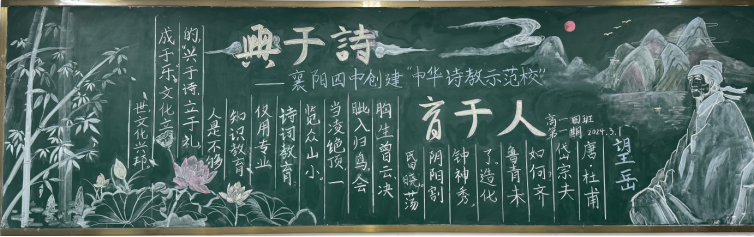 興于詩
——襄阳四中创建"中华诗教示范校"
育于人
高一 四班
第一期 2024.3.1
望岳
唐·杜甫
岱宗夫
如何齐
鲁青未
了。造化
钟神秀,
阴阳割
昏晓。荡
胸生曾云,决
眦入归鸟。会
当凌绝顶,一
览众山小。
诗词教育
仅用专业
知识教育
人是不够
的,"兴于诗,立于礼,
成于乐"文化
世文化兴邦